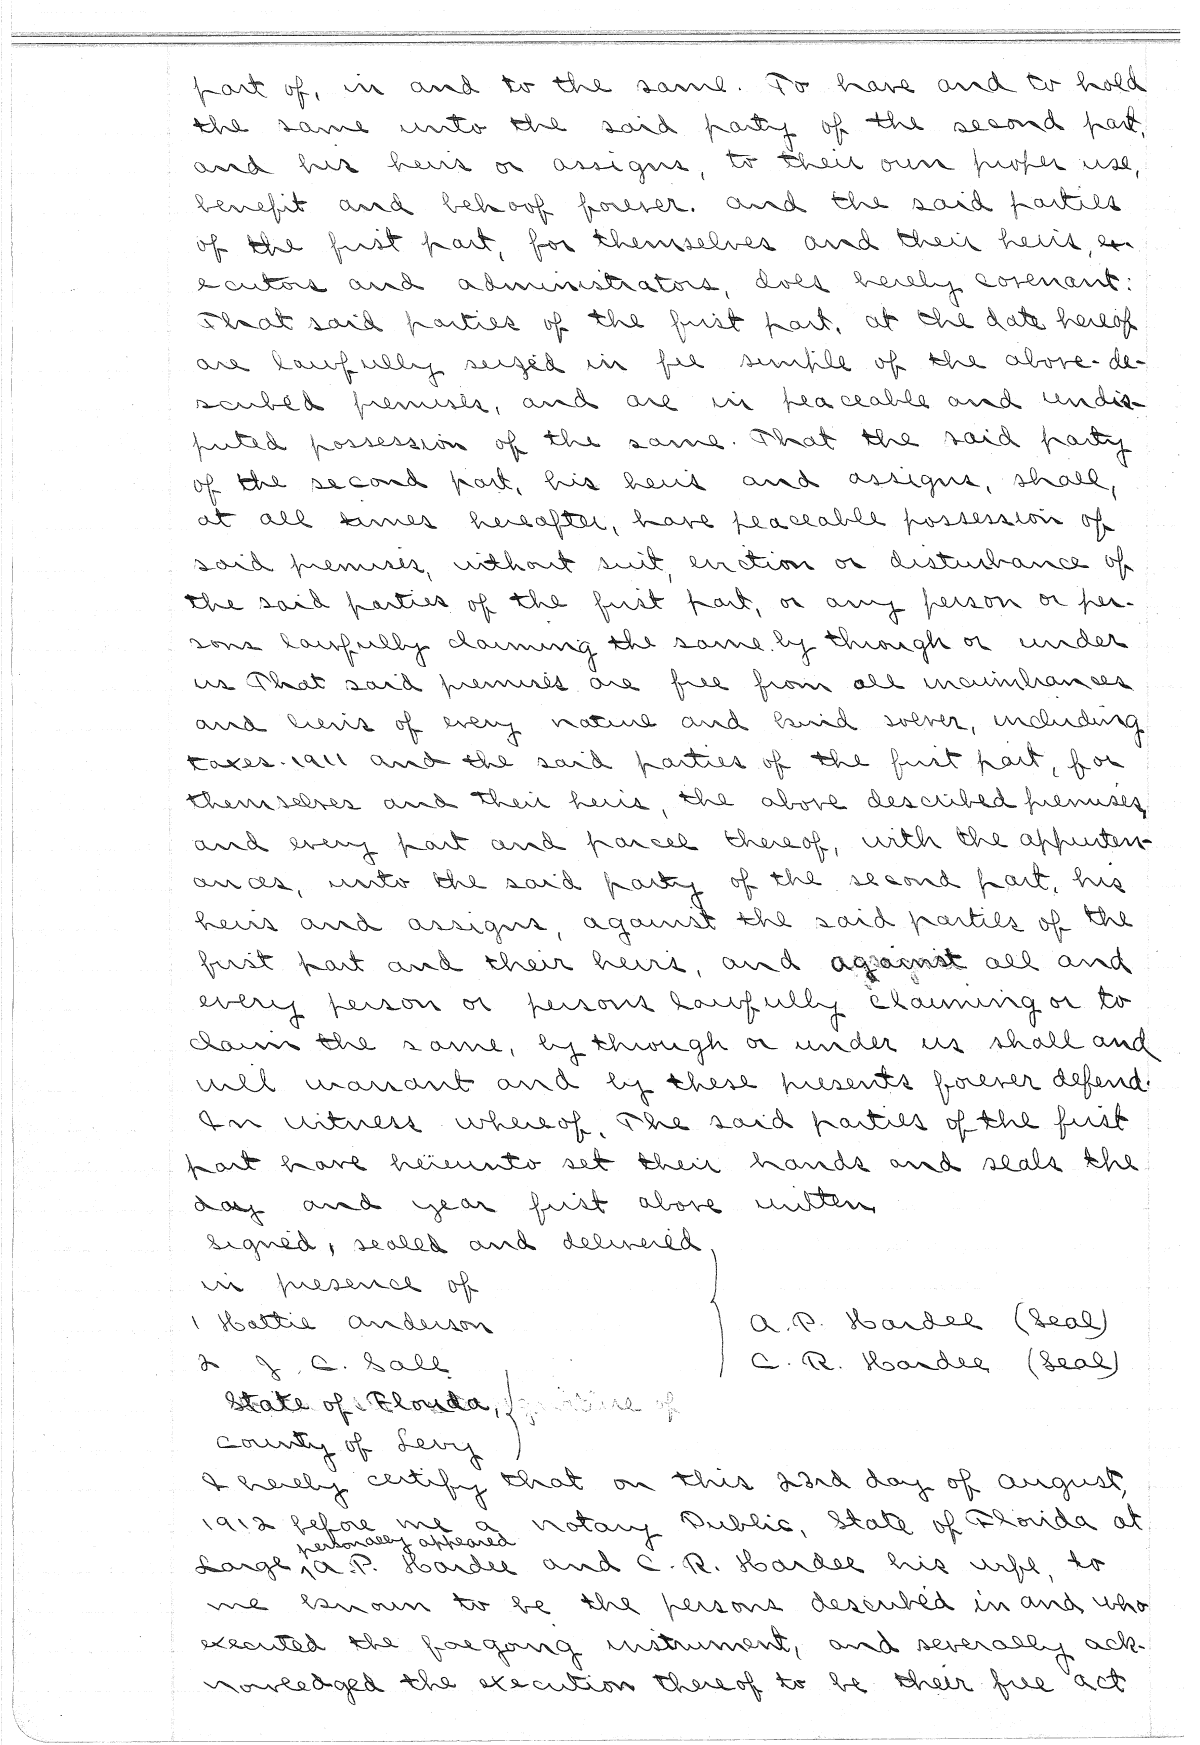 part of, in and to the same. To have and to hold
the same unto the said party of the second part,
and his heirs or assigns, to their own proper use,
benefit and behoof forever. and the said parties
of the first part, for themselves and their heirs, ex-
ecutors and administrators, does hereby covenant:
That said parties of the first part, at the date hereof
are lawfully seized in fee simple of the above-de-
scribed premises, and are in peaceable and undis-
puted possession of the same. That the said party
of the second part, his heirs and assigns, shall,
at all times hereafter, have peaceable possession of
said premises, without suit, eviction or disturbance of
the said parties of the first part, or any person or per-
sons lawfully claiming the same by through or under
us That said premises are free from all incumbrances
and liens of every nature and kind soever, including
taxes. 1911 and the said parties of the first part, for
themselves and their heirs, the above described premises,
and every part and parcel thereof, with the appurten-
ances, unto the said party of the second part, his
heirs and assigns, against the said parties of the
first part and their heirs, and against all and
every person or persons lawfully claiming or to
claim the same, by through or under us shall and
will warrant and by these presents forever defend.
In witness whereof, The said parties of the first
part have hereunto set their hands and seals the
day and year first above written,
Signed, sealed and delivered,
in presence of
1 Hattie Anderson
A. P. Hardee (Seal)
2 J. C. Sale
C. R. Hardee (Seal)
State of Florida,
County of Levy
I hereby certify that on this 23rd day of August,
1912 before me a notary Public, State of Florida at
personally appeared
Large, A. P. Hardee and C. R. Hardee his wife, to
me known to be the persons described in and who
executed the foegoing instrument, and severally ack-
nowledged the execution thereof to be their free act